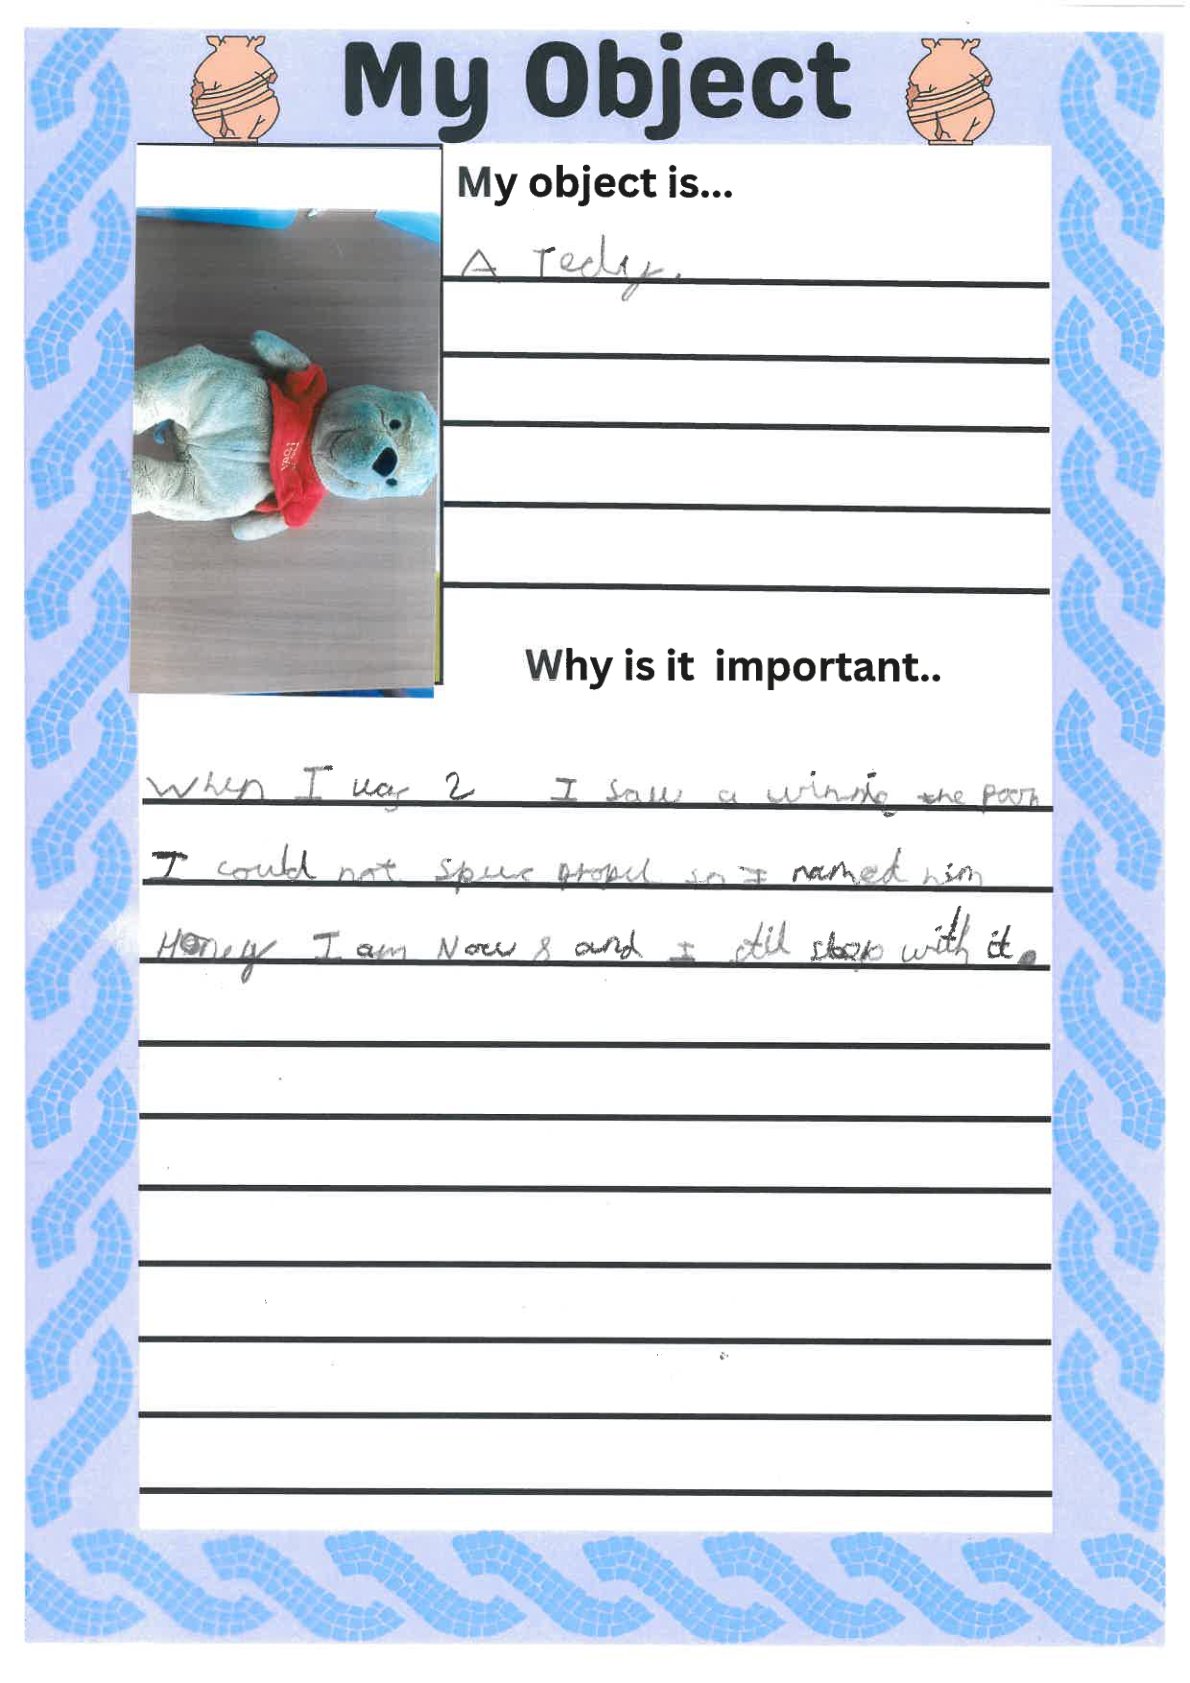 My Object
My object is...
A Tedy.
Why is it important..
When I was 2 I saw a winnie the pooh
I could not
so I named him
Honey I am Now 8 and I stil sleep with it.